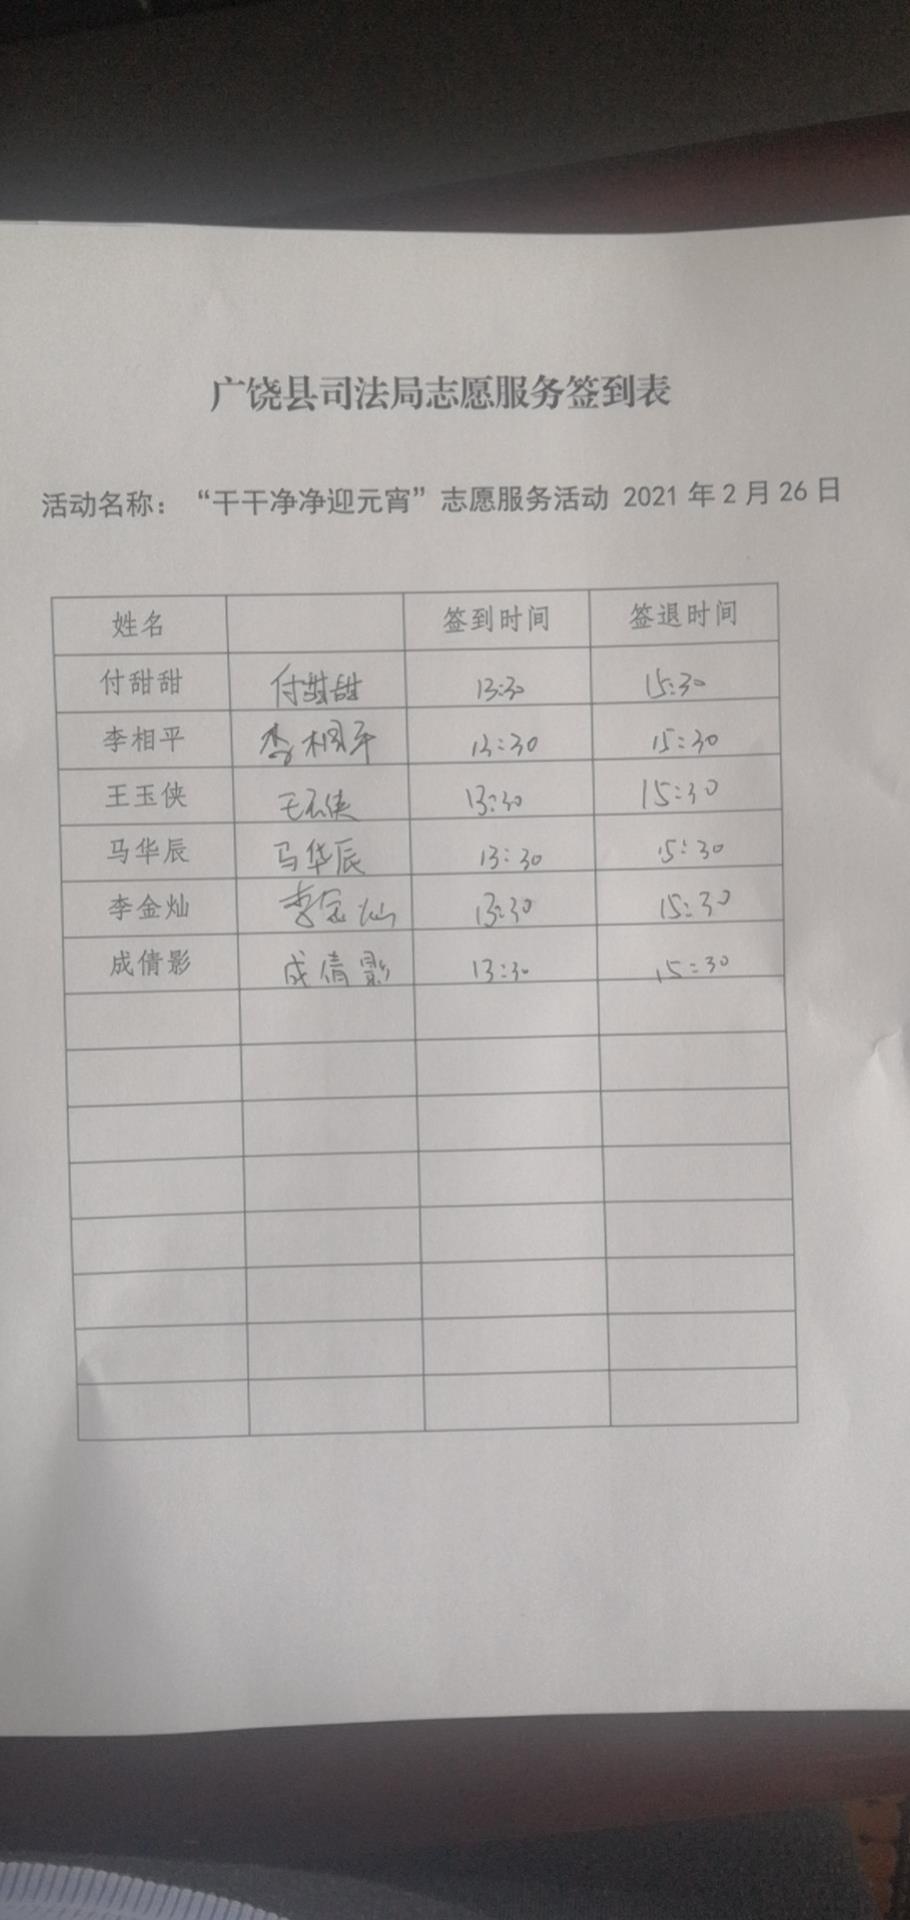 广饶县司法局志愿服务签到表
活动名称：“干干净净迎元宵”志愿服务活动 2021年2月26日
姓名 签到时间 签退时间
付甜甜 付甜甜 13:30 15:30
李相平 李相平 13:30 15:30
王玉侠 王玉侠 13:30 15:30
马华辰 马华辰 13:30 15:30
李金灿 李金灿 13:30 15:30
成倩影 成倩影 13:30 15:30